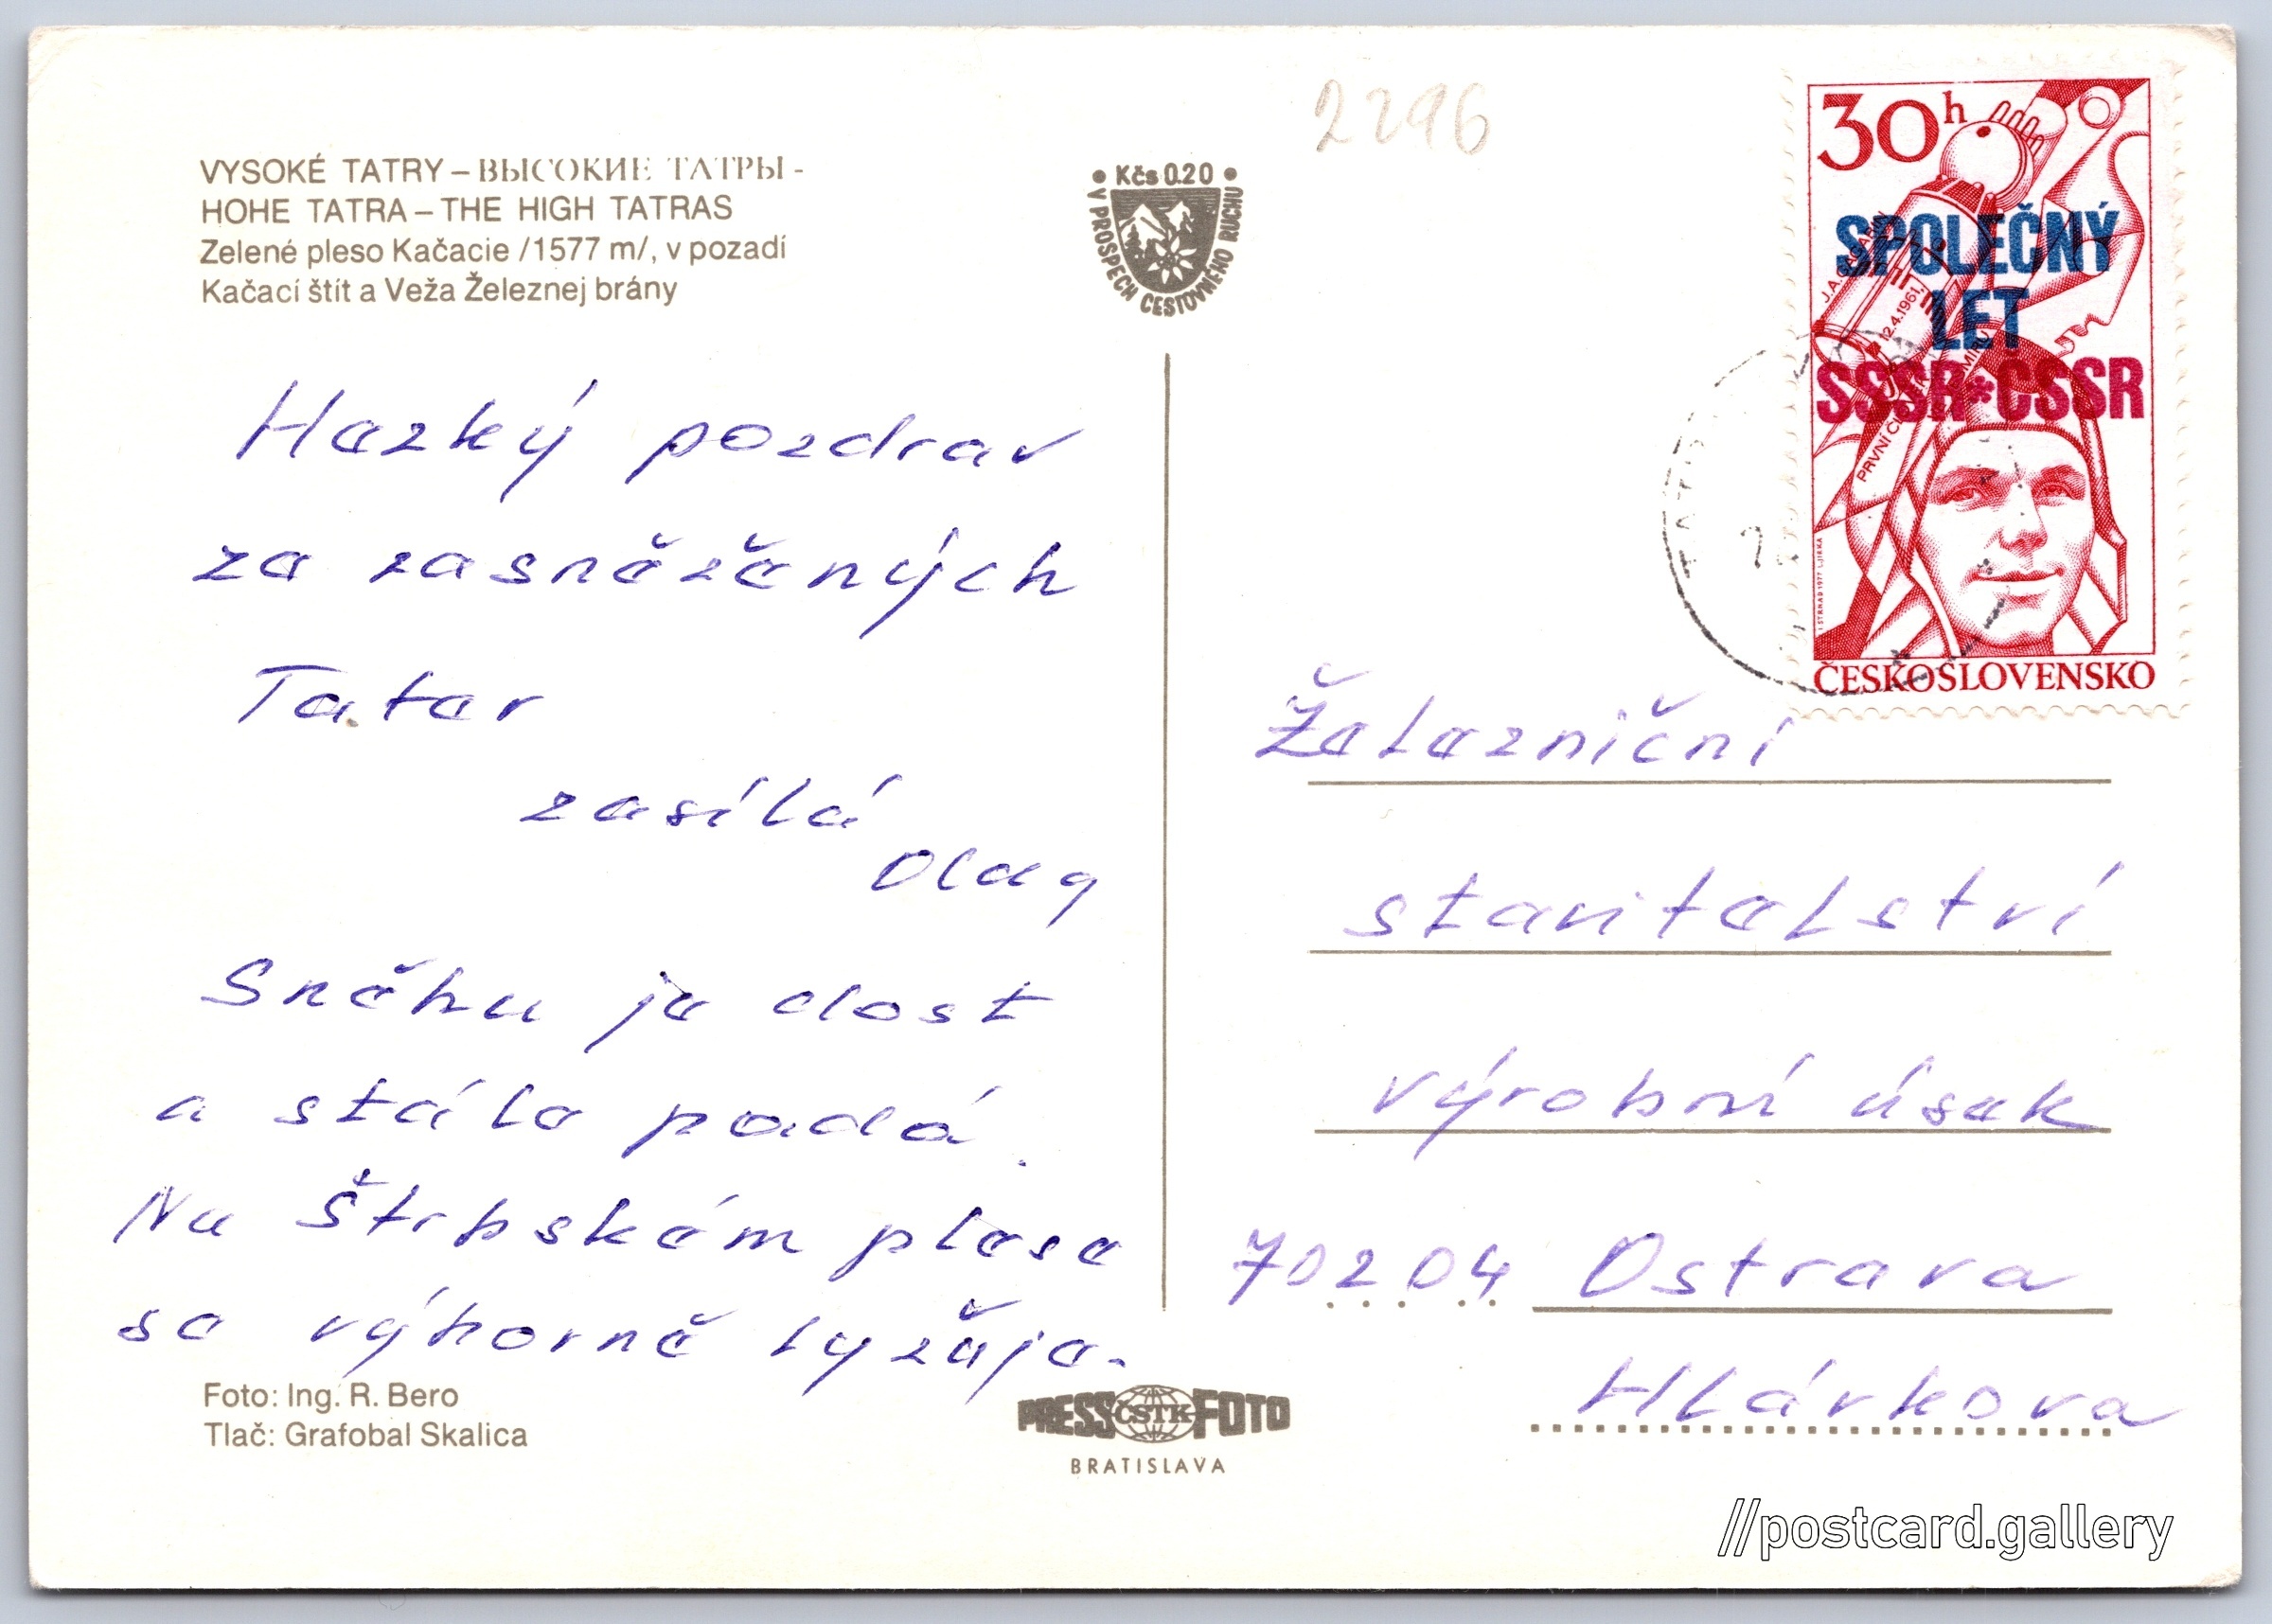 2296
VYSOKÉ TATRY – ВЫСОКИЕ ТАТРЫ -
HOHE TATRA – THE HIGH TATRAS
Zelené pleso Kačacie /1577 m/, v pozadí
Kačací štít a Veža Železnej brány
• Kčs 0.20 •
V PROSPECH CESTOVNÉHO RUCHU
30h
J.A. GAGARIN
12.4.1961
SPOLEČNÝ
LET
SSSR*ČSSR
ČESKOSLOVENSKO
Hezký pozdrav
ze zasněžených
Tater
zasílá
Sněhu je dost
a stále padá.
Na Štrbském plese
se výborně lyžuje.
Železniční
stavitelství
výrobní úsek
70204 Ostrava
Hlávkova
Foto: Ing. R. Bero
Tlač: Grafobal Skalica
PRESS ČSTK FOTO
BRATISLAVA
//postcard.gallery